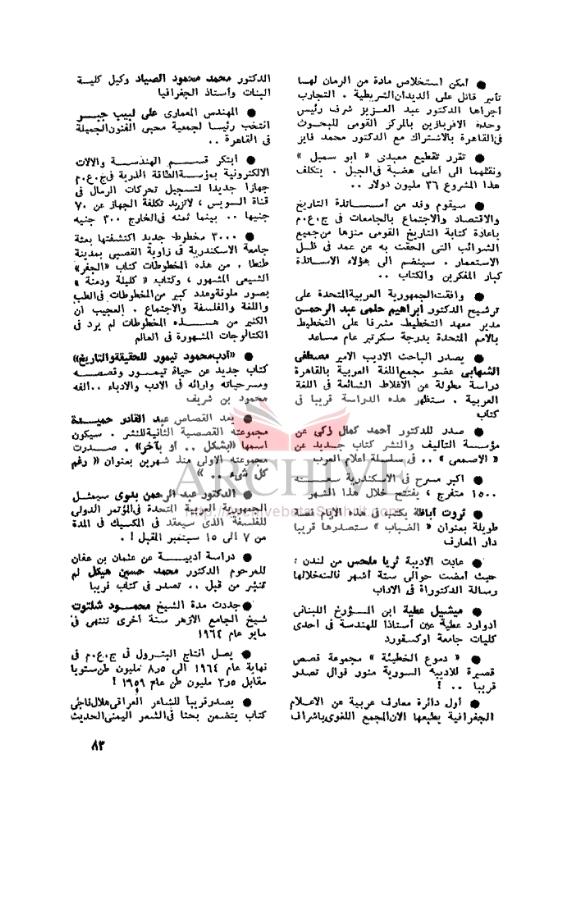 ● أمكن استخلاص مادة من الرمان لهسا
تأثير قاتل على الديدان الشريطية . التجارب
أجراها الدكتور عبد العزيز شرف رئيس
وحدة الاقربازين بالمركز القومى للبحوث
فى القاهرة بالاشتراك مع الدكتور محمد فايز
● تقرر تقطيع معبدى « ابو سمبل »
ونقلهما الى أعلى هضبة فى الجبل . يتكلف
هذا المشروع ٣٦ مليون دولار ..
● سيقوم وفد من أســـاتذة التاريخ
والاقتصاد والاجتماع بالجامعات فى ج.ع.م
باعادة كتابة التاريخ القومى منزها من جميع
الشوائب التى الحقت به عن عمد فى ظـل
الاستعمار . سينضم الى هؤلاء الاســاتذة
كبار المفكرين والكتاب ..
● وافقت الجمهورية العربية المتحدة على
ترشيح الدكتور أبراهيم حلمى عبد الرحمـن
مدير معهد التخطيط مشرفا على التخطيط
بالامم المتحدة بدرجة سكرتير عام مساعد
● يصدر الباحث الاديب الامير مصطفى
الشهابى عضو مجمع اللغة العربية بالقاهرة
دراسة مطولة عن الاغلاط الشائعة فى اللغة
العربية . ستظهر هذه الدراسة قريبا فى
كتاب
● صدر للدكتور أحمد كمال زكى عن
مؤسسة التأليف والنشر كتاب جديد عن
« الاصمعى » .. فى سلسلة أعلام العرب
● اكبر مسرح فى الاسكندرية سعـــته
١٥٠٠ متفرج ، يفتتح خلال هذا الشهر
● ثروت أباظة يكتب فى هذه الايام قصة
طويلة بعنوان « الضباب » ستصدرها قريبا
دار المعارف
● عادت الاديبة ثريا ملحس من لندن ؛
حيث أمضت حوالى ستة أشهر نالت خلالها
رسالة الدكتوراة فى الاداب
● ميشيل عطية ابن المـؤرخ اللبنانى
ادوارد عطية عين أستاذا للهندسة فى احدى
كليات جامعة اوكسفورد
● « دموع الخطيئة » مجموعة قصص
قصيرة للاديبة السورية منور فوال تصدر
قريبا .. !
● أول دائرة معارف عربية عن الاعـلام
الجغرافية يطبعها الان المجمع اللغوى باشراف
الدكتور محمد محمود الصياد وكيل كليـة
البنات وأستاذ الجغرافيا
● المهندس المعمارى على لبيب جبــر
انتخب رئيسا لجمعية محبى الفنون الجميلة
فى القاهرة ..
● ابتكر قســم الهندســة والالات
الالكترونية بمؤسسة الطاقة الذرية فى ج.ع.م
جهازا جديدا لتسجيل تحركات الرمال فى
قناة السويس ، لاتزيد تكلفة الجهاز عن ٧٠
جنيها .. بينما ثمنه فى الخارج ٣٠٠ جنيه
● ٣٠٠٠ مخطوط جديد اكتشفتها بعثة
جامعة الاسكندرية فى زاوية القصبى بمدينة
طنطا . من هذه المخطوطات كتاب «الجفر»
الشيعى المشهور ، وكتاب « كليلة ودمنة »
بصور ملونة وعدد كبير من المخطوطات فى الطب
واللغة والفلسفة والاجتماع . العجيب أن
الكثير من هـــذه المخطوطات لم يرد فى
الكتالوجات المشهورة فى العالم
● «أدب محمود تيمور للحقيقة والتاريخ»
كتاب جديد عن حياة تيمور وقصصـه
ومسرحياته وارائه فى الادب والادباء ..الفه
محمود بن شريف
● يعد القصاص عبد القادر حميـدة
مجموعته القصصية الثانية للنشر . سيكون
اسمها «بشكل .. أو بآخر» . صــدرت
مجموعته الاولى منذ شهرين بعنوان « رغم
كل شىء »
● الدكتور عبد الرحمن بدوى سيمثـل
الجمهورية العربية المتحدة فى المؤتمر الدولى
للفلسفة الذى سيعقد فى المكسيك فى المدة
من ٧ الى ١٥ سبتمبر المقبل ! .
● دراسة أدبيـــة عن عثمان بن عفان
للمرحوم الدكتور محمد حسين هيكل لم
تنشر من قبل .. تصدر فى كتاب قريبا
● جددت مدة الشيخ محمــود شلتوت
شيخ الجامع الازهر سنة أخرى تنتهى فى
مايو عام ١٩٦٤
● يصل انتاج البترول فى ج.ع.م فى
نهاية عام ١٩٦٤ الى ٨ر٥ مليون طن سنويا
مقابل ٣ر٥ مليون طن عام ١٩٥٩ !
● يصدر قريبا للشاعر العراقى هلال ناجى
كتاب يتضمن بحثا فى الشعر اليمنى الحديث
٨٣
ARCHIVE